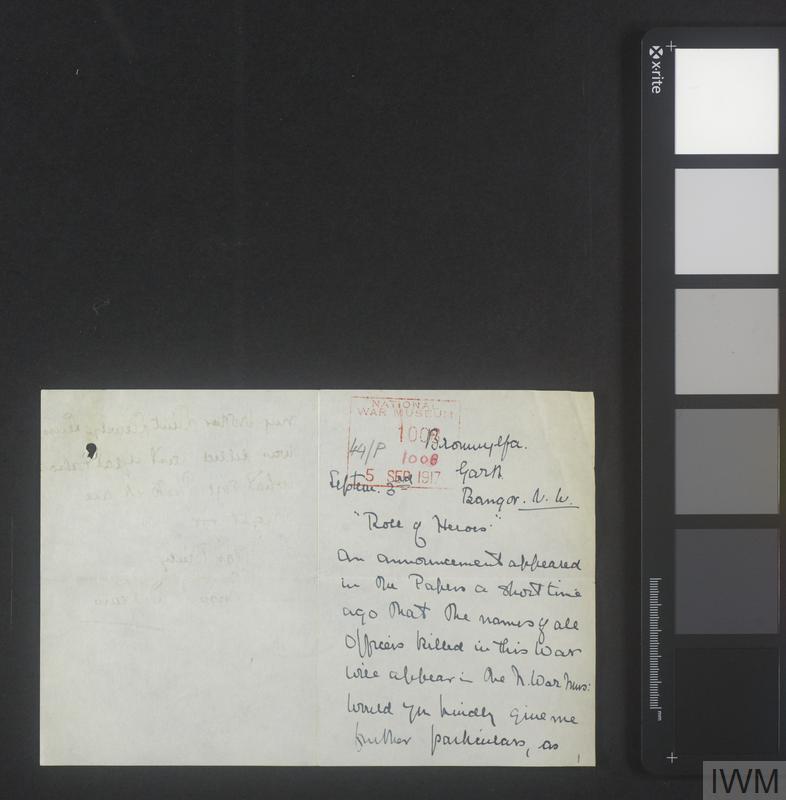 NATIONAL
WAR MUSEUM
1008
44/P 1008
5 SEP 1917
Bromwylfa.
Garth
Septem. 3rd
Bangor. N. W.
"Roll of Heroes"
An announcement appeared
in the Papers a short time
ago that the names of all
Officers killed in this War
will appear in the N. War Mus:
Would you kindly give me
further particulars, as
x-rite
mm
IWM